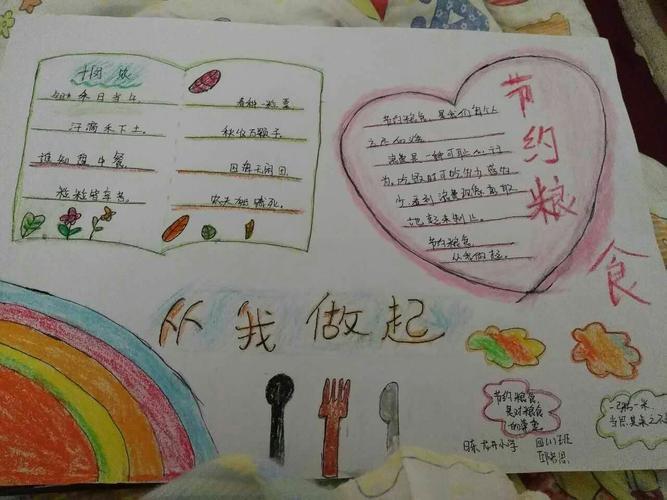 锄禾日当午,
汗滴禾下土。
谁知盘中餐,
粒粒皆辛苦。
春种一粒粟,
秋收万颗子。
四海无闲田,
农夫犹饿死。
节约粮食,是我们每个人
浪费是一种可耻的行
为,吃饭时可吃多少
少,看到浪费现象
起来制止。
节约粮食,
从我做起。
节约粮食
从我做起
节约粮食
是对粮食
的尊重
一粥一米
当思来之不
小学
四(1)班